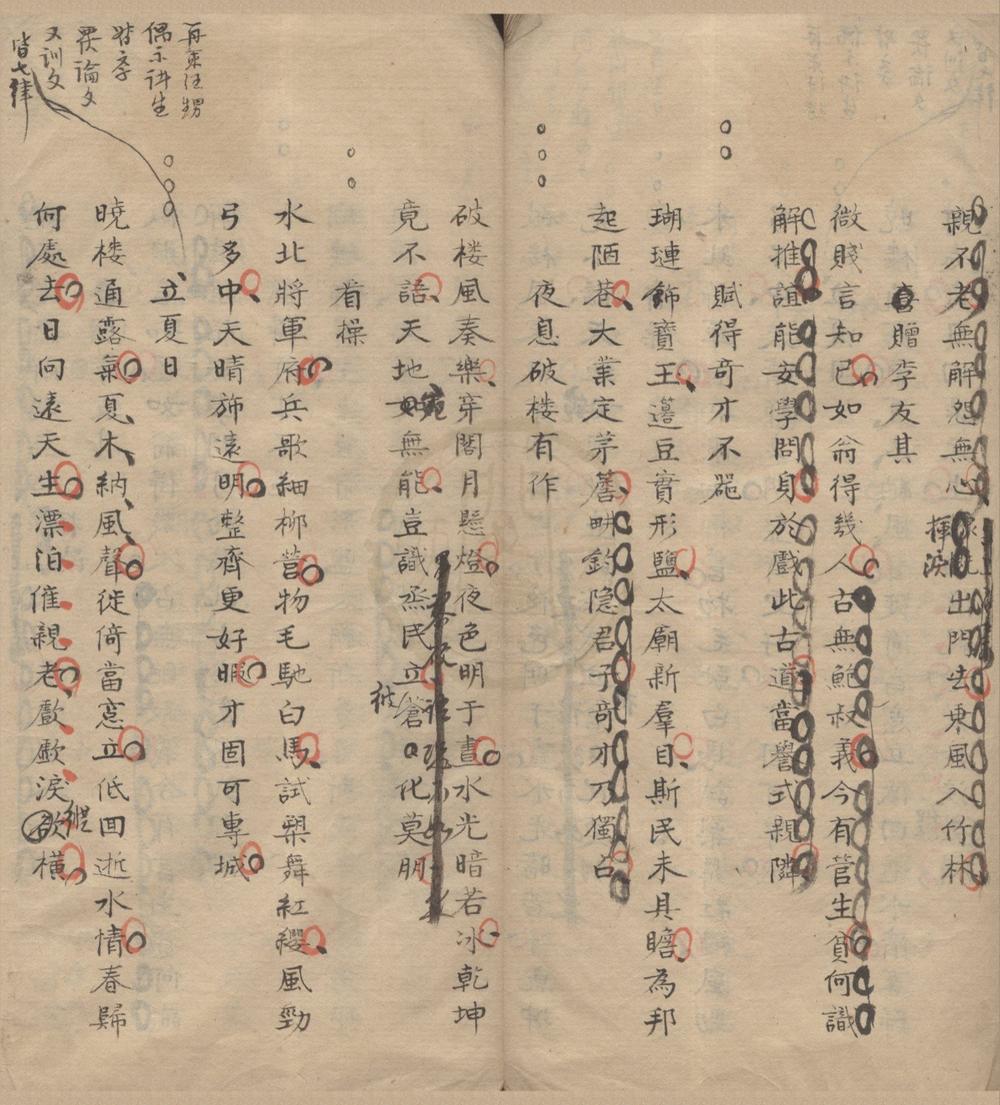 親不老無解怨無心揮淚出門去乗風入竹林
喜贈李友其
微賤言知已如翁得幾人古無鮑叔義今有管生貧何識
解推誼能安學問身於戲此古道當譽式親隣
賦得奇才不器
瑚璉飾寶王籩豆實形鹽太廟新羣目斯民未具瞻為邦
起陋巷大業定茅簷畊釣隐君子奇才乃獨占
夜息破楼有作
破楼風奏樂穿閣月懸燈夜色明于晝水光暗若冰乾坤
竟不語天地宛無能豈識烝民立蒼被化莫朋
看操
水北將軍府兵歌細柳營物毛馳白馬試槊舞紅纓風勁
弓多中天晴斾遠明整齊更好暇才固可專城
立夏日
曉楼通露氣夏木納風聲徙倚當窓立低回逝水情春歸
何處去日向遠天生漂泊催親老歔欷淚縱橫
偶示讲生
又訓文
皆七律